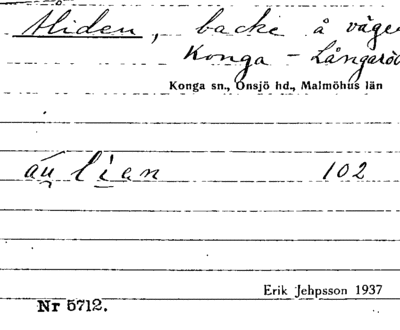 Åliden, backe å väge
Konga - Långarö
Konga sn., Onsjö hd., Malmöhus län
áu̯ li̱en 102
Erik Jehpsson 1937
Nr 5712.